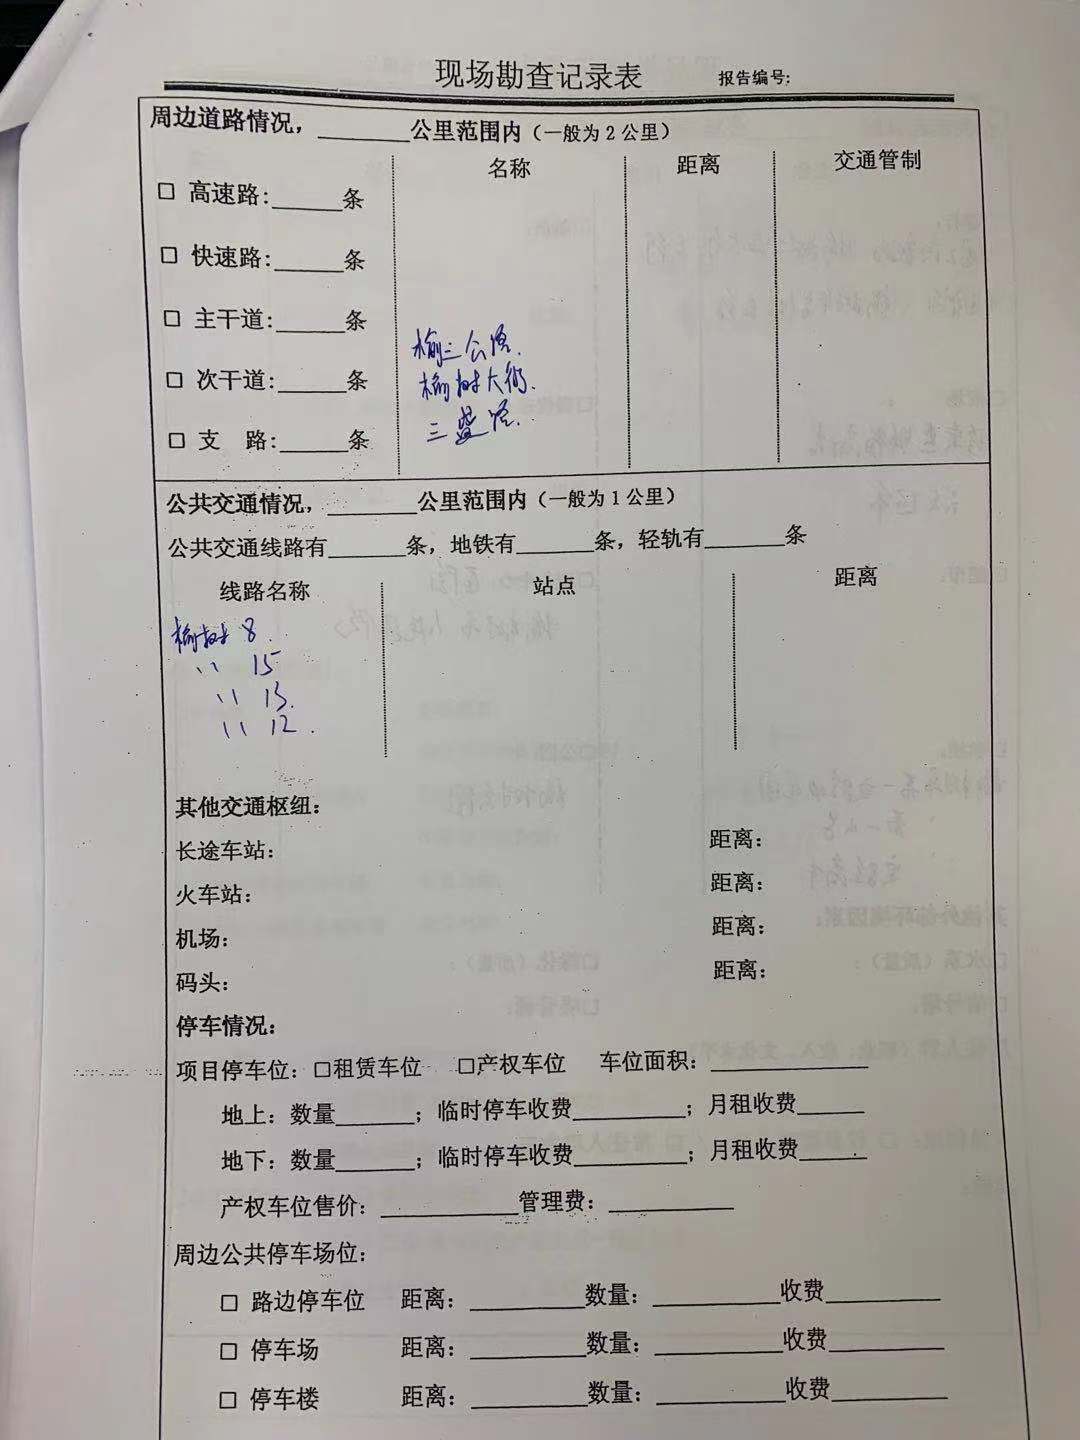 现场勘查记录表 报告编号:
周边道路情况，______公里范围内（一般为2公里）
名称 距离 交通管制
□ 高速路:_____条
□ 快速路:_____条
□ 主干道:_____条
榆三公路.
□ 次干道:_____条 榆树大街.
□ 支 路:_____条 三盛路.
公共交通情况，______公里范围内（一般为1公里）
公共交通线路有_____条，地铁有_____条，轻轨有_____条
线路名称 站点 距离
榆树 8.
〃 15
〃 13.
〃 12.
其他交通枢纽：
长途车站： 距离：
火车站： 距离：
机场： 距离：
码头： 距离：
停车情况：
项目停车位：□租赁车位 □产权车位 车位面积：__________
地上：数量_____；临时停车收费_______；月租收费____
地下：数量_____；临时停车收费_______；月租收费____
产权车位售价：_________管理费：________
周边公共停车场位：
□ 路边停车位 距离：________数量：________收费_______
□ 停车场 距离：________数量：________收费_______
□ 停车楼 距离：________数量：________收费_______